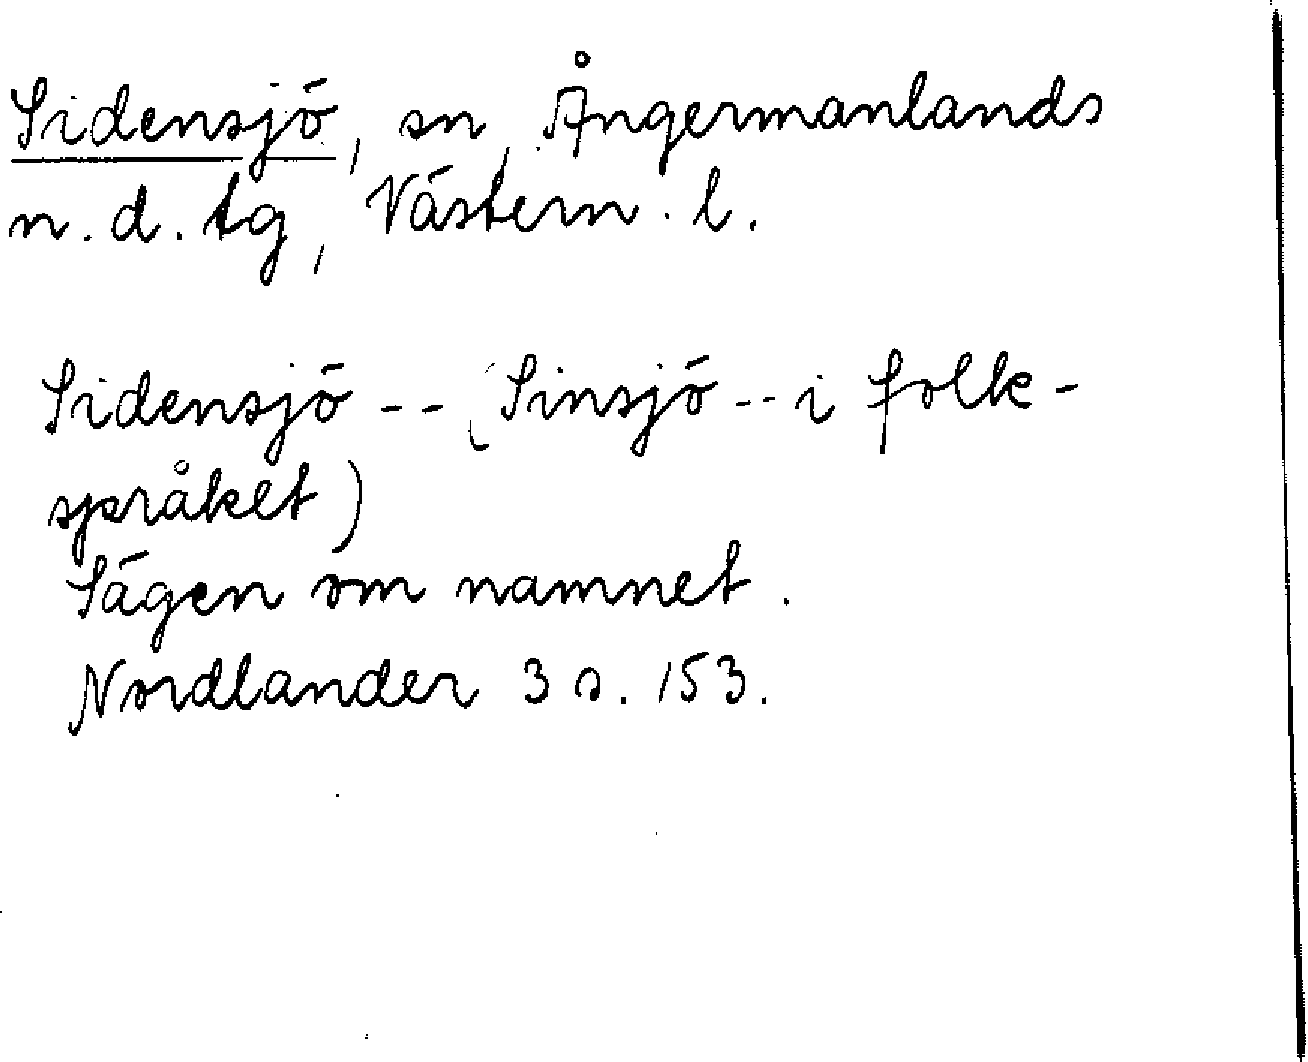 Sidensjö, sn, Ångermanlands
n. d. tg, Västern. l.
Sidensjö -- (Sinsjö -- i folk-
språket)
Sägen om namnet.
Nordlander 3 s. 153.